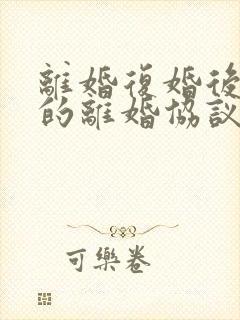 離婚復婚後
的離婚協議
可樂卷